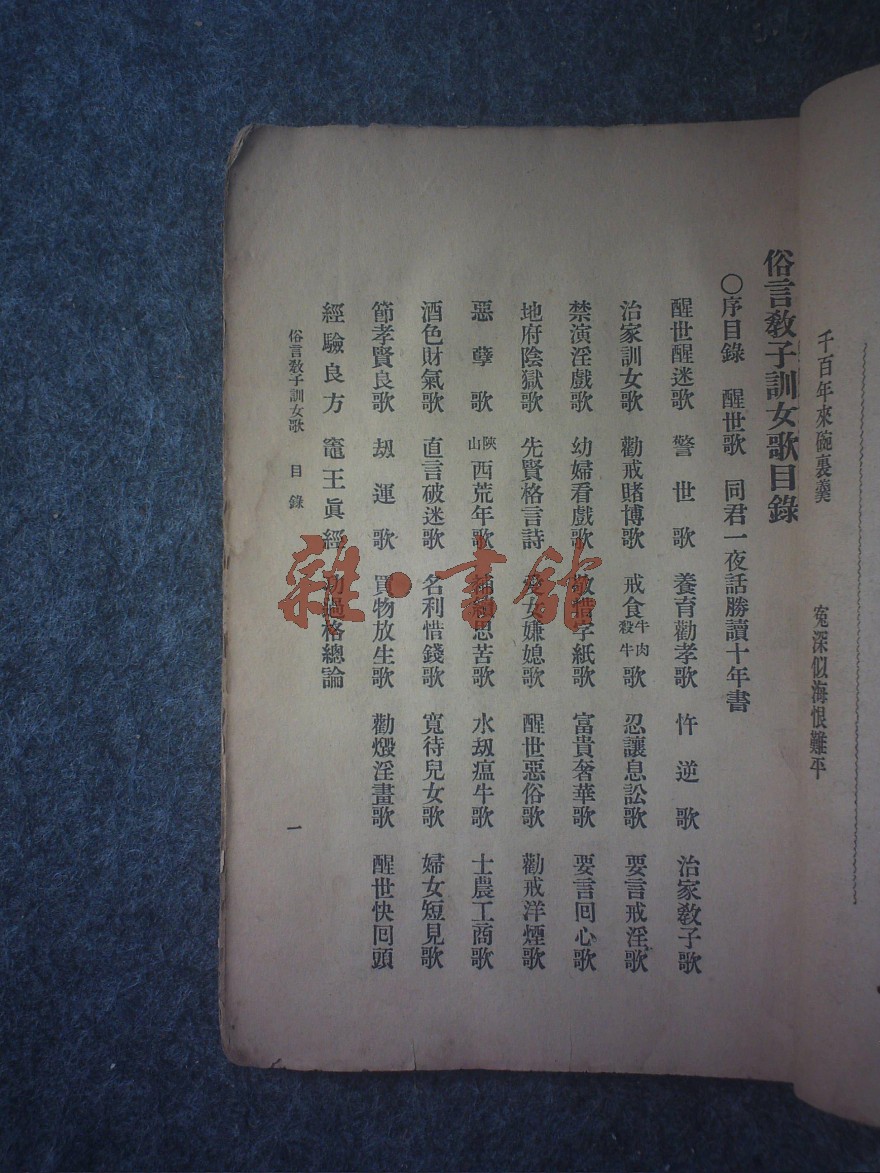 千百年來碗裏羹
冤深似海恨難平
俗言教子訓女歌目錄
○序目錄 醒世歌 同君一夜話勝讀十年書
醒世醒迷歌 警世歌 養育勸孝歌 忤逆歌 治家教子歌
治家訓女歌 勸戒賭博歌 戒食牛肉殺牛歌 忍讓息訟歌 要言戒淫歌
禁演淫戲歌 幼婦看戲歌 敬惜字紙歌 富貴奢華歌 要言回心歌
地府陰獄歌 先賢格言詩 愛女嫌媳歌 醒世惡俗歌 勸戒洋煙歌
惡孽歌 陝山西荒年歌 思苦歌 水刼瘟牛歌 士農工商歌
酒色財氣歌 直言破迷歌 名利惜錢歌 寬待兒女歌 婦女短見歌
節孝賢良歌 刼運歌 買物放生歌 勸燬淫畫歌 醒世快回頭
經驗良方 竈王眞經 功過格總論
俗言教子訓女歌 目錄 一
雜·書館